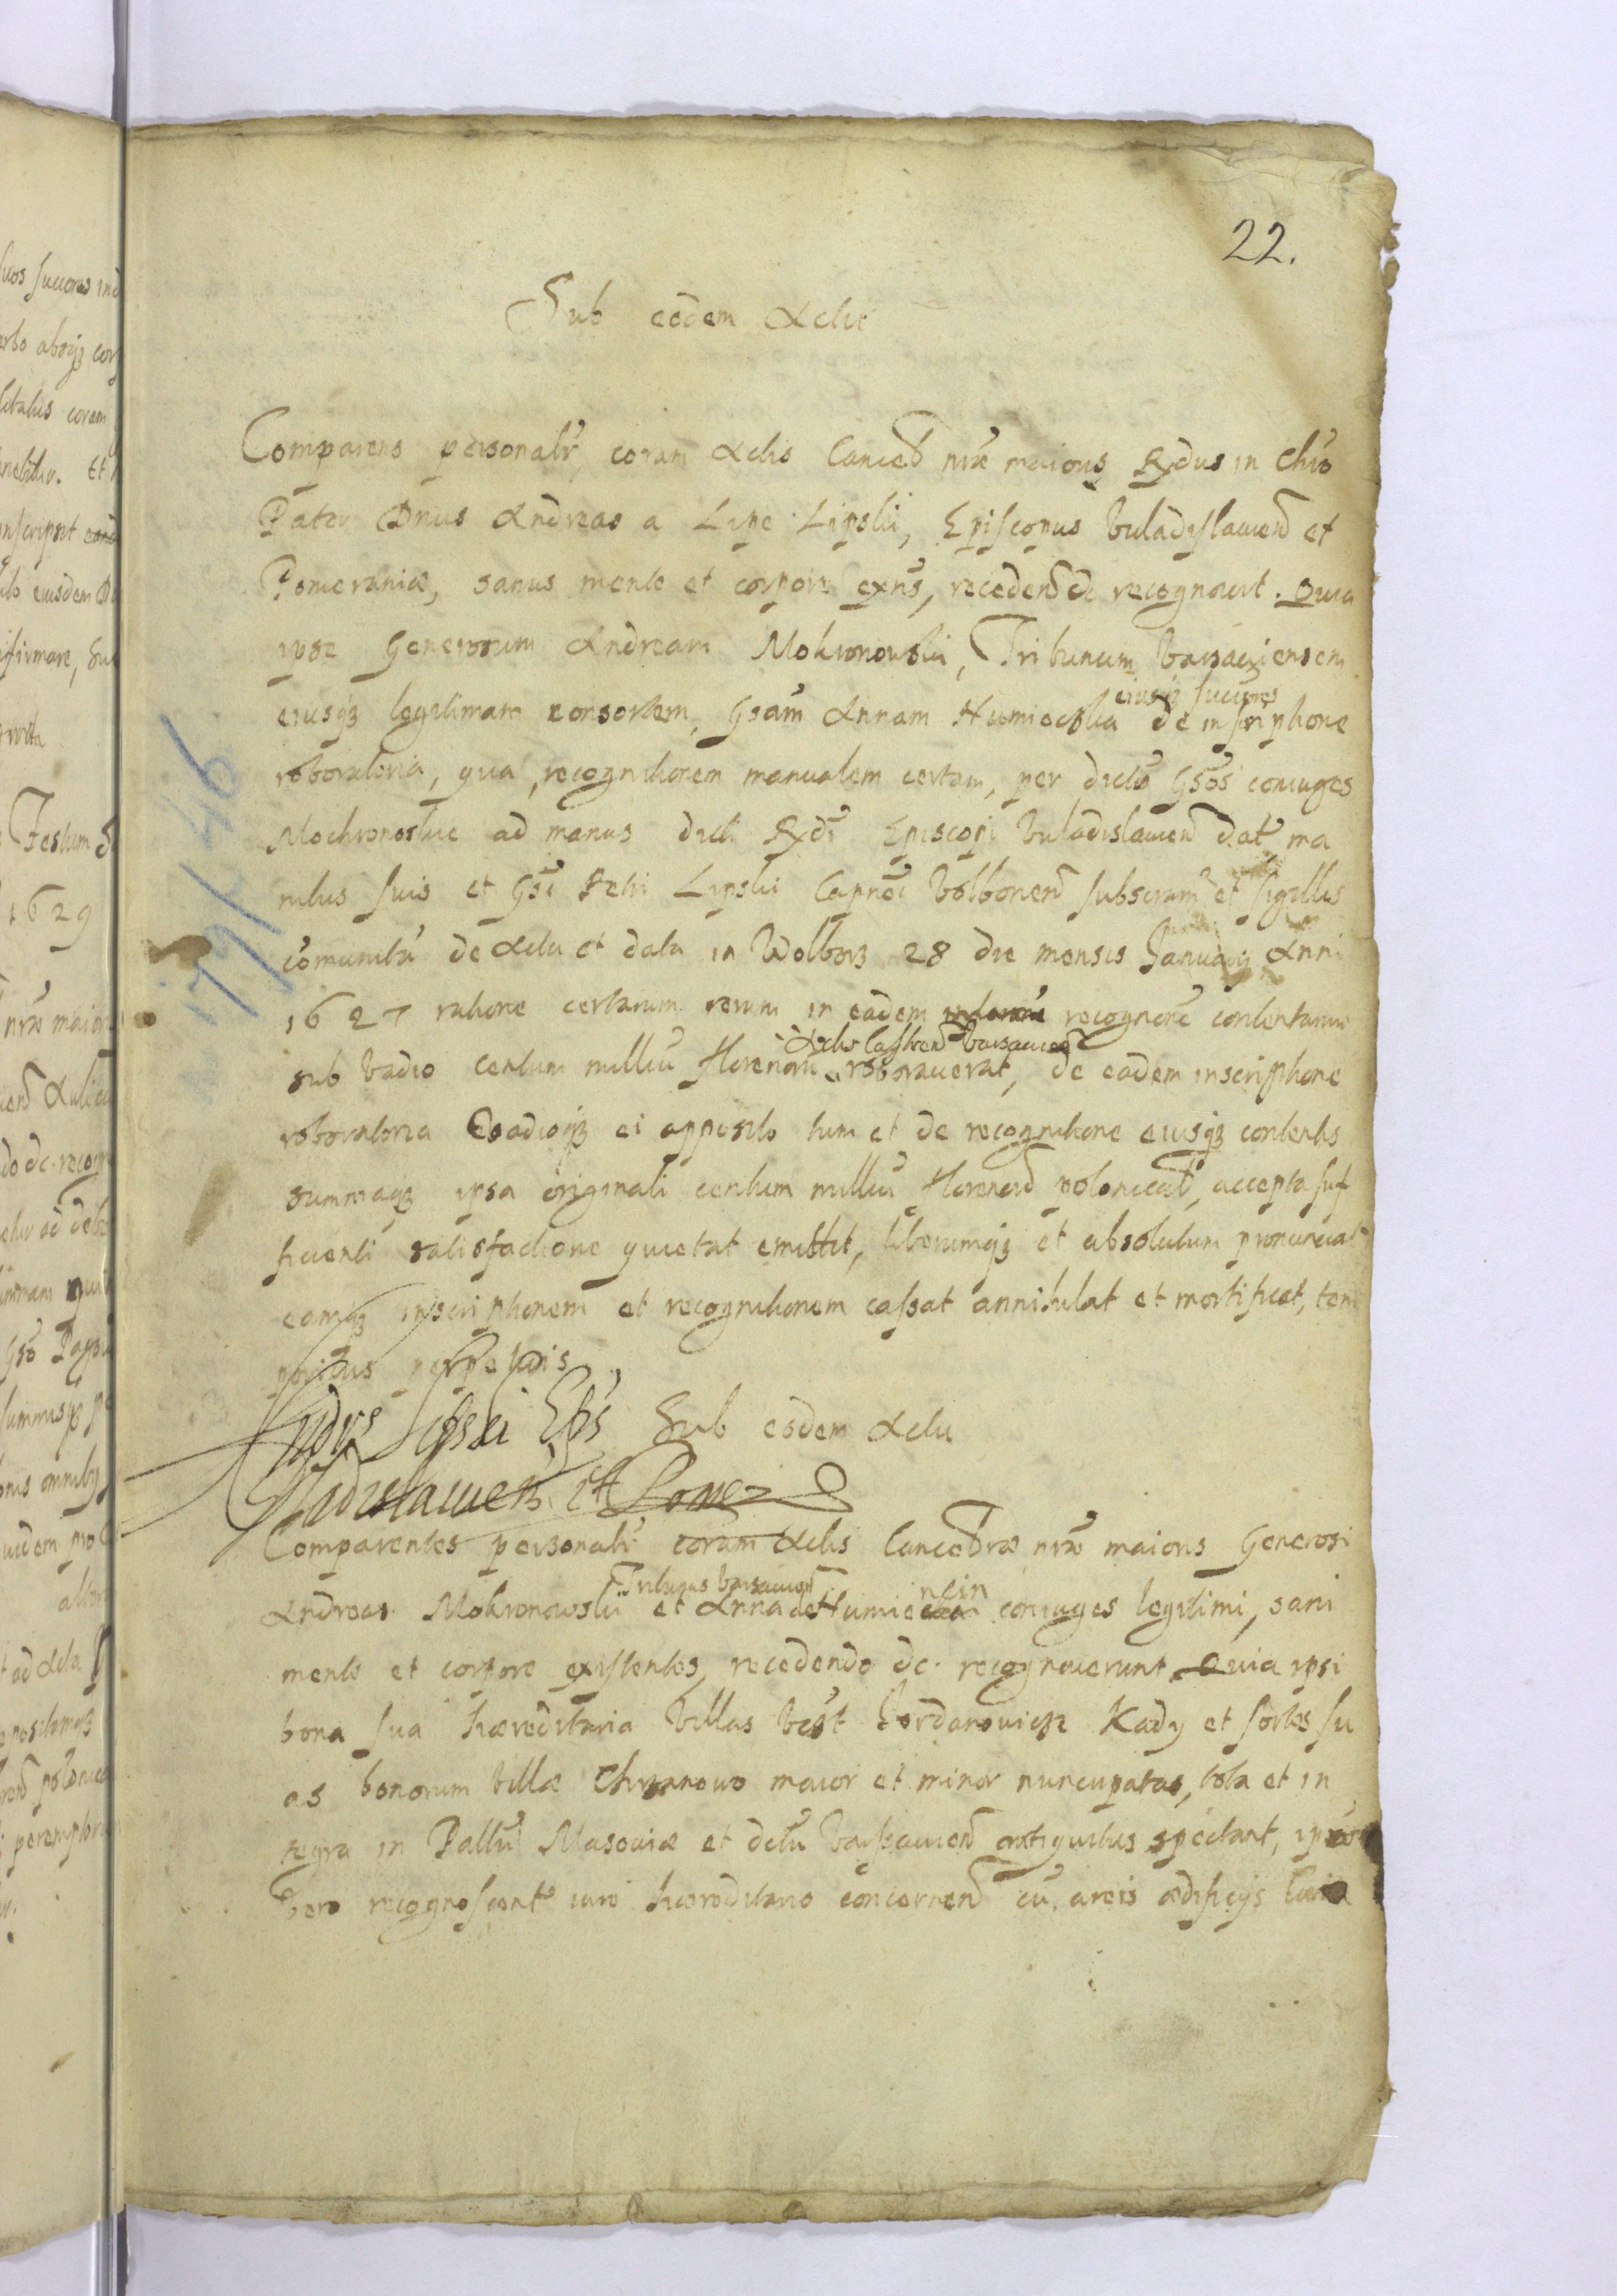 22.
Sub eodem Actu
Comparens personalr coram Actis Cancell nrae maioris Rxdus in Chro
Pater Dnus Andreas a Lipe Lipski, Episcopus Vuladyslauien et
Pomeraniae, sanus mente et corpore exns, recedend &c recognouit. Quia
ipse Generosum Andream Mokronowski, Tribunum Varsauiensem
eiusq legitimam consortem, Gsam Annam Humiecska eiusq succores de inscriptione
roboratoria, qua, recognitionem manualem certam, per dictos Gsos coniuges
Mochronoskie ad manus dicti Rxdi Episcopi Vuladislauien dat ma
nibus suis et Gsi Petri Lipski Capnei Volborien subscram et sigillis
comunita de Actu et data in Wolborz 28 die mensis January Anni
1627 ratione certarum rerum in eadem recognone contentarum
sub vadio centum milliu florenoru Actis Castren Varsauien roborauerat, de eadem inscriptione
roboratoria Vadioq ei apposito tum et de recognitione eiusq contentis
summaq ipsa originali centum milliu florenoru polonical, accepta suf
ficienti satisfactione quietat emittit, liberumq et absolutum pronunciat
eamq inscriptionem et recognitionem cassat annihilat et mortificat, tem
poribus perpetuis
Andreas Lipski Eps Sub eodem Actu
Vladislauien. et Pomer
Comparentes personalr coram Actis Cancellariae nrae maioris Generosi
Andreas Mokronowski Tribunus Varsauien et Anna de Humięcin coniuges legitimi, sani
mente et corpore existentes, recedendo &c. recognouerunt. Quia ipsi
bona sua haereditaria Villas Vust Jordanouice Kady et sortes su
as bonorum Villae Chrzanowo maior et minor nuncupatas, tota et in
tegra in Pallu Masouiae et dctu Varssauien antiquitus spectant, ipsos
vero recognoscent iure haereditario concernen cu areis aedificijs Curia
1791/46